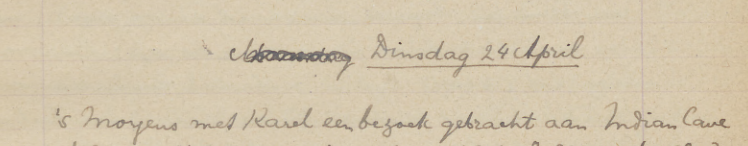 Dinsdag 24 April
's Morgens met Karel een bezoek gebracht aan Indian Cave